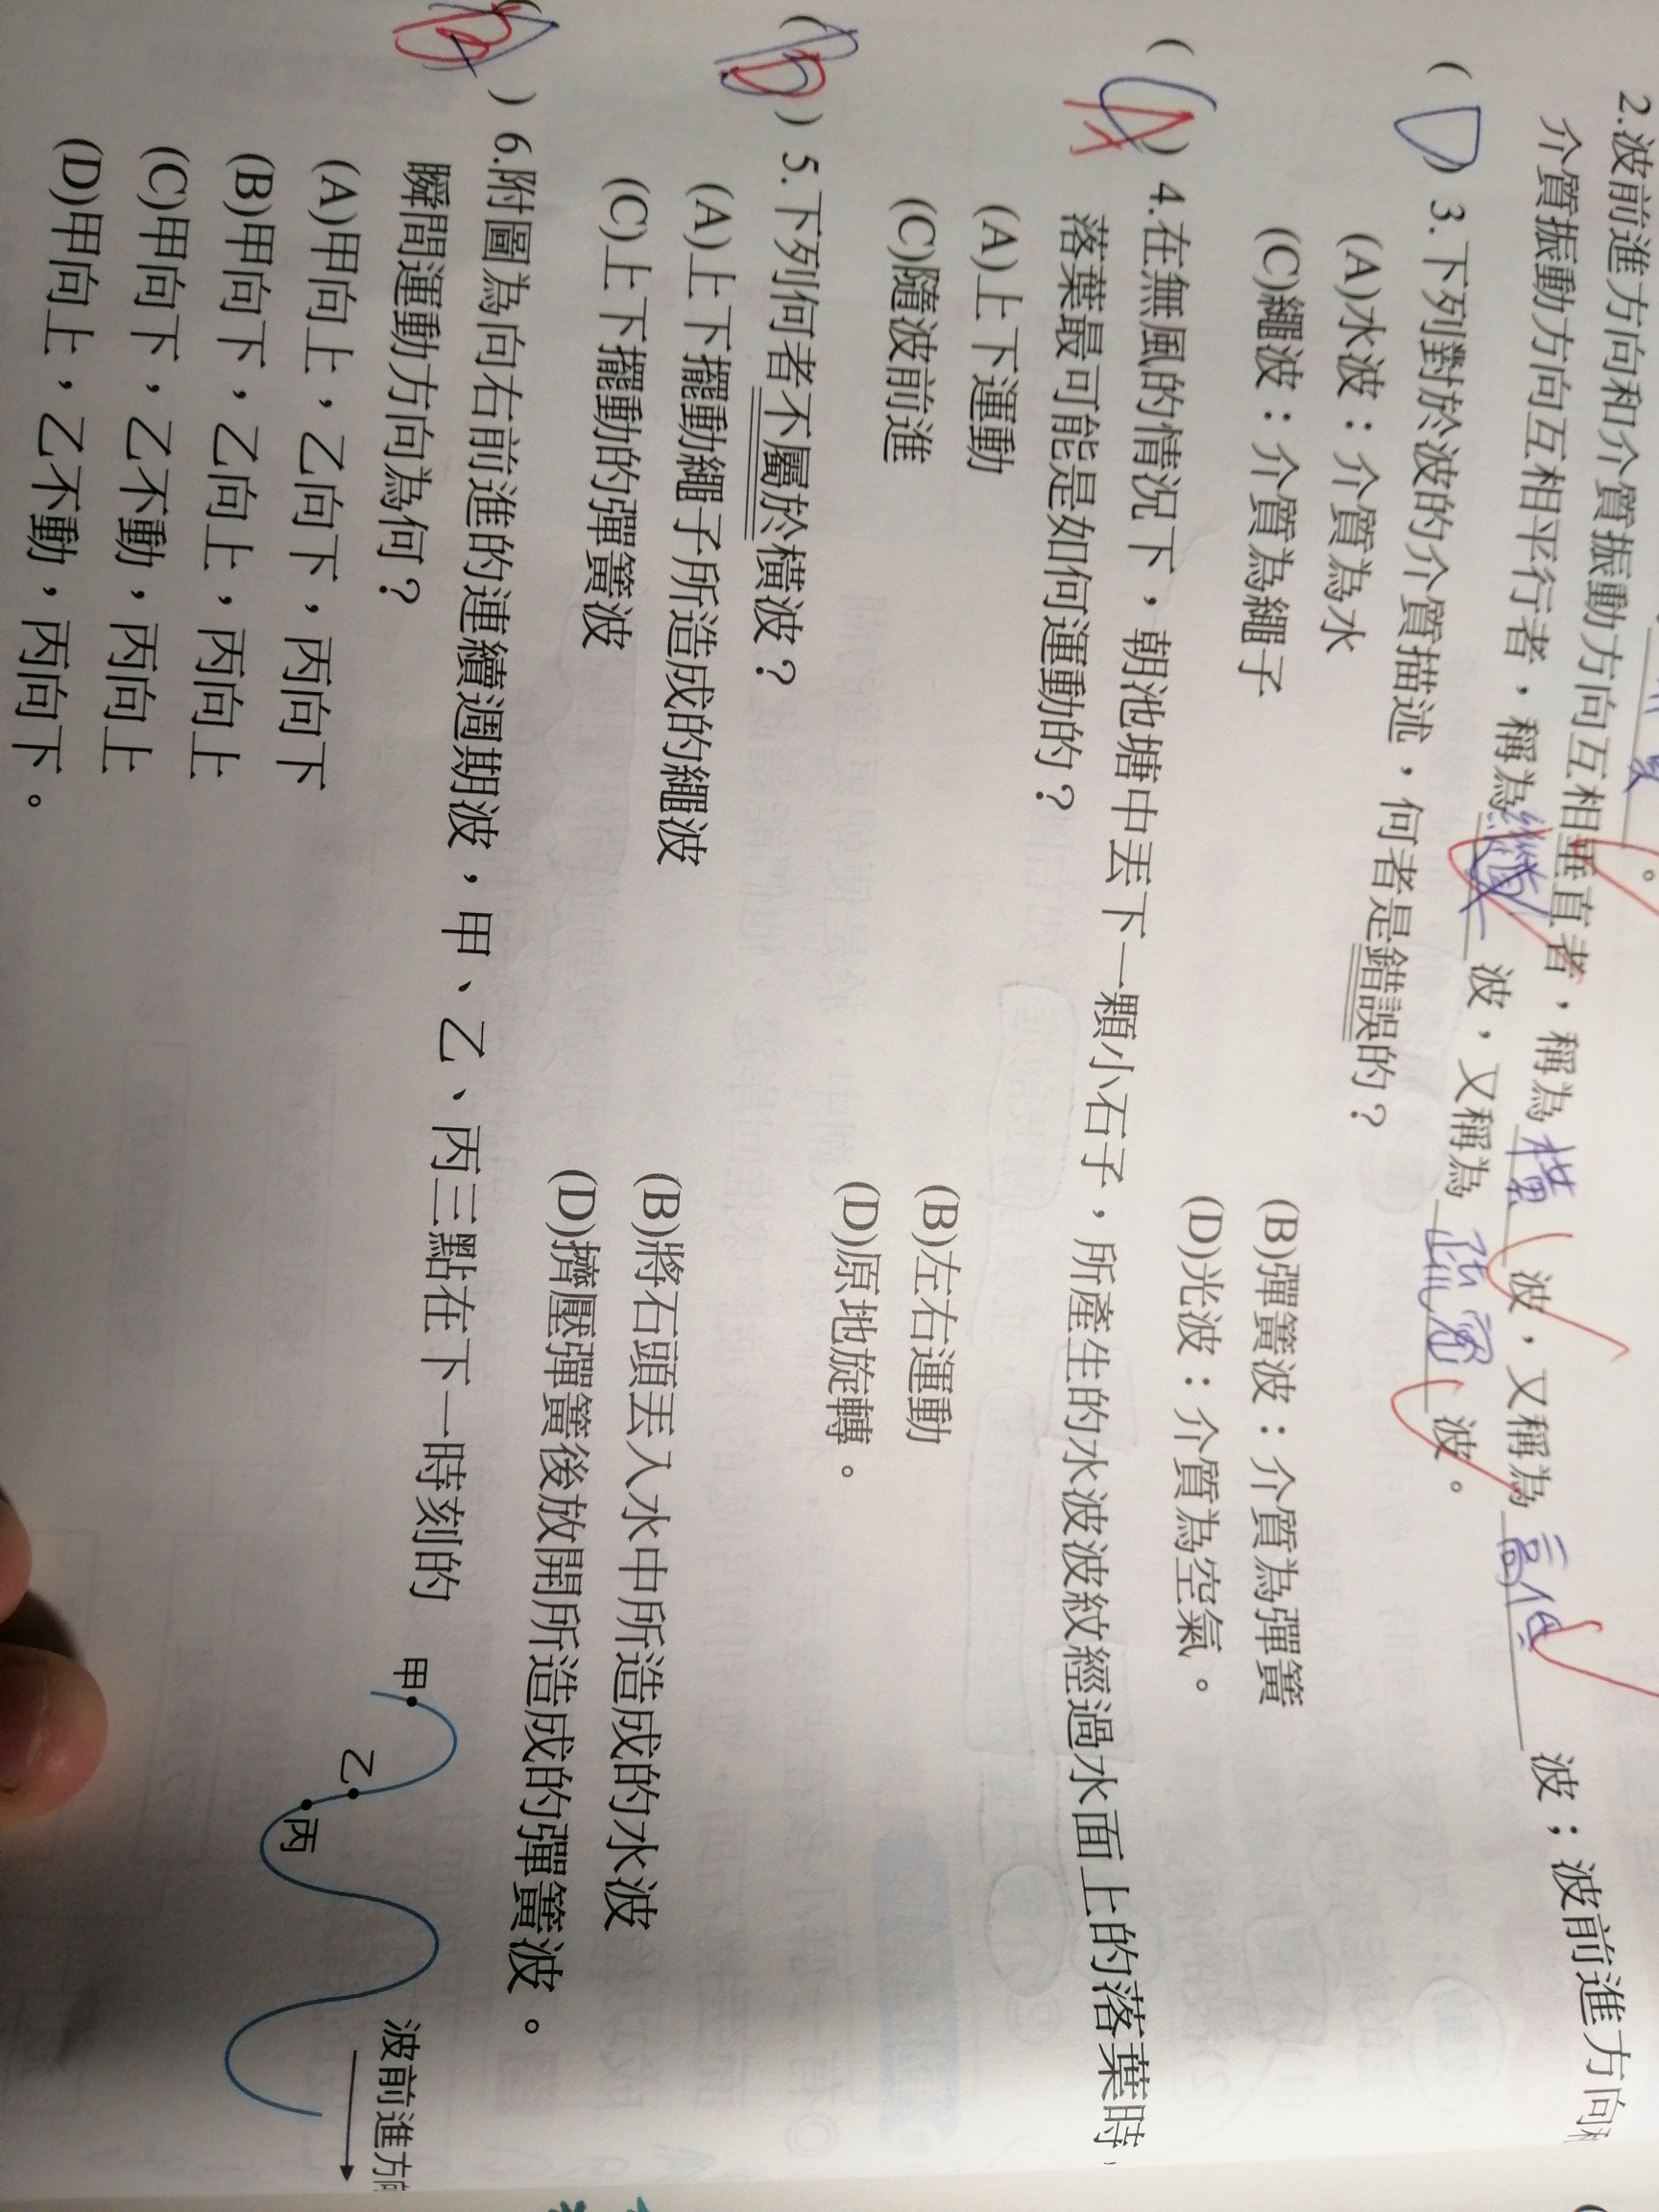 2.波前進方向和介質振動方向互相垂直者，稱為橫波，又稱為高低波；波前進方向
介質振動方向互相平行者，稱為縱波，又稱為疏密波。
(D) 3.下列對於波的介質描述，何者是錯誤的？
(A)水波：介質為水 (B)彈簧波：介質為彈簧
(C)繩波：介質為繩子 (D)光波：介質為空氣。
(A) 4.在無風的情況下，朝池塘中丟下一顆小石子，所產生的水波波紋經過水面上的落葉時，
落葉最可能是如何運動的？
(A)上下運動 (B)左右運動
(C)隨波前進 (D)原地旋轉。
(D) 5.下列何者不屬於橫波？
(A)上下擺動繩子所造成的繩波 (B)將石頭丟入水中所造成的水波
(C)上下擺動的彈簧波 (D)擠壓彈簧後放開所造成的彈簧波。
(B) 6.附圖為向右前進的連續週期波，甲、乙、丙三點在下一時刻的
瞬間運動方向為何？
(A)甲向上，乙向下，丙向下
(B)甲向下，乙向上，丙向上
(C)甲向下，乙不動，丙向上
(D)甲向上，乙不動，丙向下。
甲
乙
丙
波前進方向